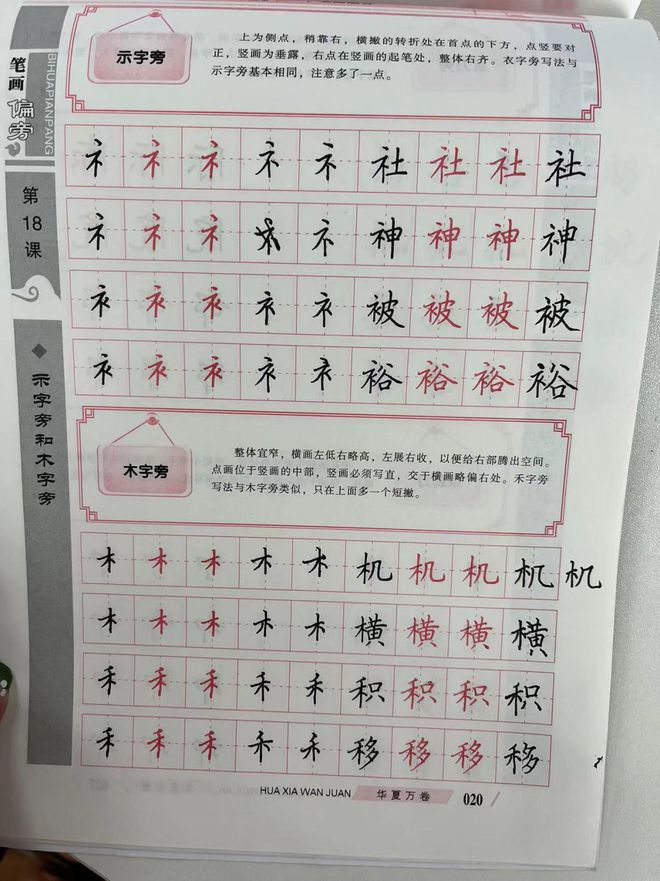 笔画
偏旁
BIHUAPIANPANG
第
18
课
◆ 示字旁和木字旁
示字旁
上为侧点，稍靠右，横撇的转折处在首点的下方，点竖要对
正，竖画为垂露，右点在竖画的起笔处，整体右齐。衣字旁写法与
示字旁基本相同，注意多了一点。
礻 礻 礻 礻 礻 社 社 社 社
礻 礻 礻 礻 礻 神 神 神 神
衤 衤 衤 衤 衤 被 被 被 被
衤 衤 衤 衤 衤 裕 裕 裕 裕
木字旁
整体宜窄，横画左低右略高，左展右收，以便给右部腾出空间。
点画位于竖画的中部，竖画必须写直，交于横画略偏右处。禾字旁
写法与木字旁类似，只在上面多一个短撇。
木 木 木 木 木 机 机 机 机 机
木 木 木 木 木 横 横 横 横
禾 禾 禾 禾 禾 积 积 积 积
禾 禾 禾 禾 禾 移 移 移 移
HUA XIA WAN JUAN 华夏万卷 020